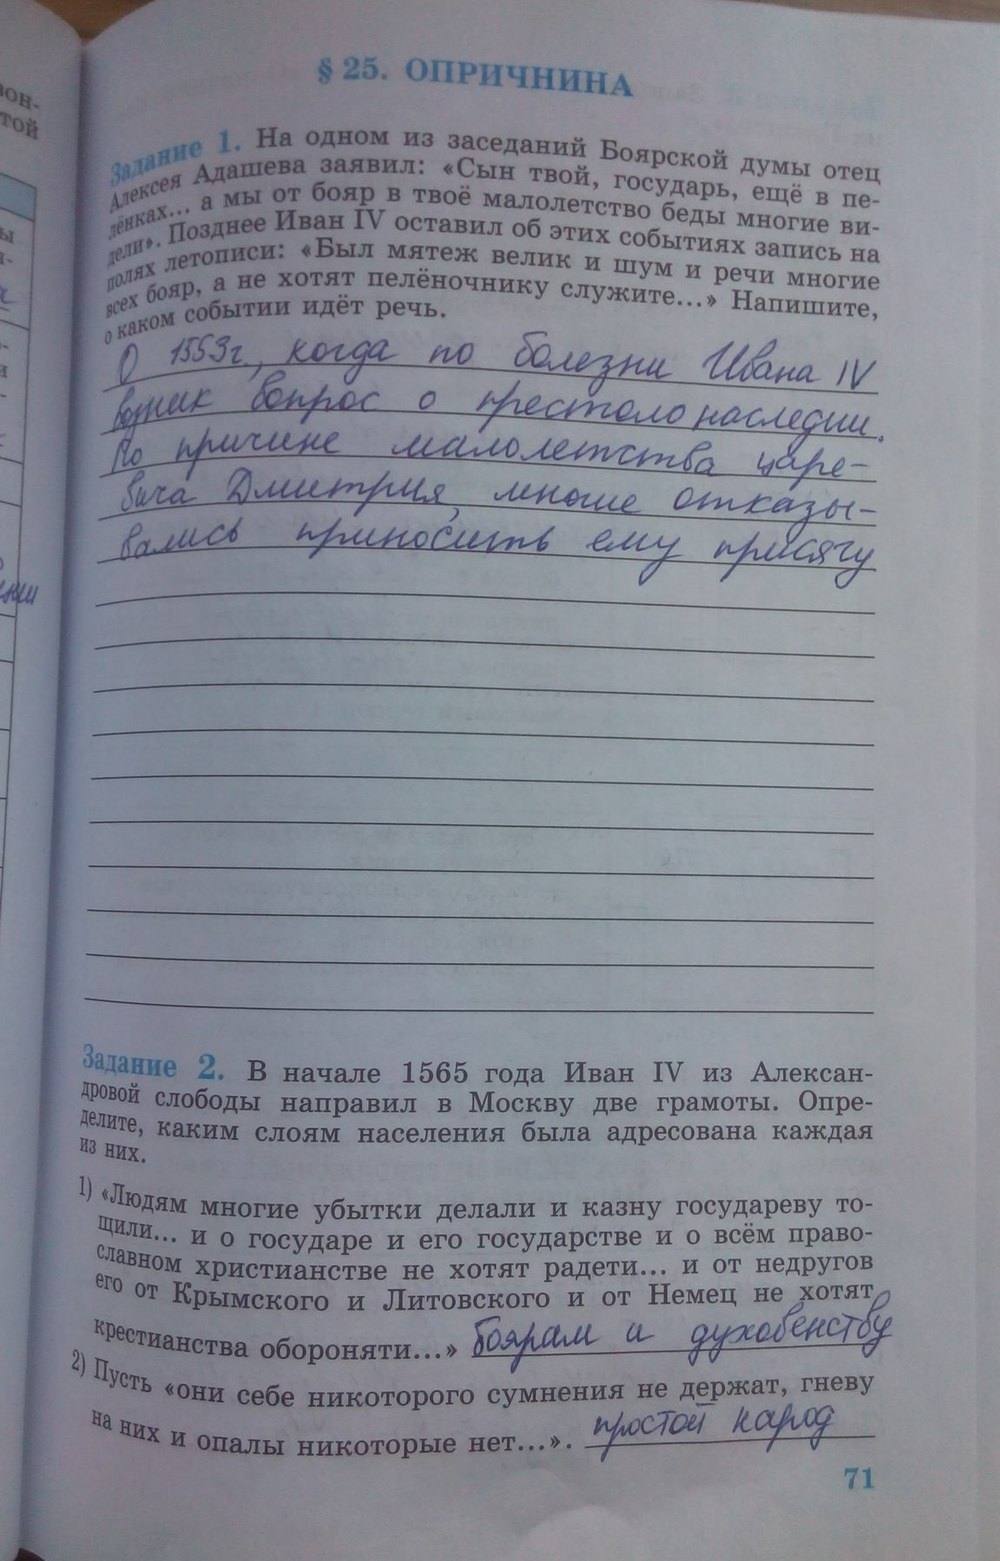 вон-
той
ы
§ 25. ОПРИЧНИНА
Задание 1. На одном из заседаний Боярской думы отец
Алексея Адашева заявил: «Сын твой, государь, ещё в пе-
лёнках... а мы от бояр в твоё малолетство беды многие ви-
дели». Позднее Иван IV оставил об этих событиях запись на
полях летописи: «Был мятеж велик и шум и речи многие
всех бояр, а не хотят пелёночнику служите...» Напишите,
о каком событии идёт речь.
О 1553г, когда по болезни Ивана IV
возник вопрос о престолонаследии.
По причине малолетства царе-
вича Дмитрия, многие отказы-
вались приносить ему присягу
Задание 2. В начале 1565 года Иван IV из Алексан-
дровой слободы направил в Москву две грамоты. Опре-
делите, каким слоям населения была адресована каждая
из них.
1) «Людям многие убытки делали и казну государеву то-
щили... и о государе и его государстве и о всём право-
славном христианстве не хотят радети... и от недругов
его от Крымского и Литовского и от Немец не хотят
крестианства обороняти...» боярам и духовенству
2) Пусть «они себе никоторого сумнения не держат, гневу
на них и опалы никоторые нет...». простой народ
71